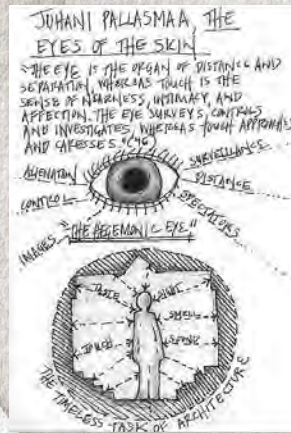 JUHANI PALLASMAA, THE
EYES OF THE SKIN
"THE EYE IS THE ORGAN OF DISTANCE AND
SEPARATION, WHEREAS TOUCH IS THE
SENSE OF NEARNESS, INTIMACY, AND
AFFECTION. THE EYE SURVEYS, CONTROLS
AND INVESTIGATES, WHEREAS TOUCH APPROACHES
AND CARESSES." (46)
ALIENATION
SURVEILLANCE
CONTROL
DISTANCE
IMAGES
SPECTATORS
"THE HEGEMONIC EYE"
TASTE
SIGHT
SMELL
TOUCH
SOUND
THE TIMELESS TASK OF ARCHITECTURE